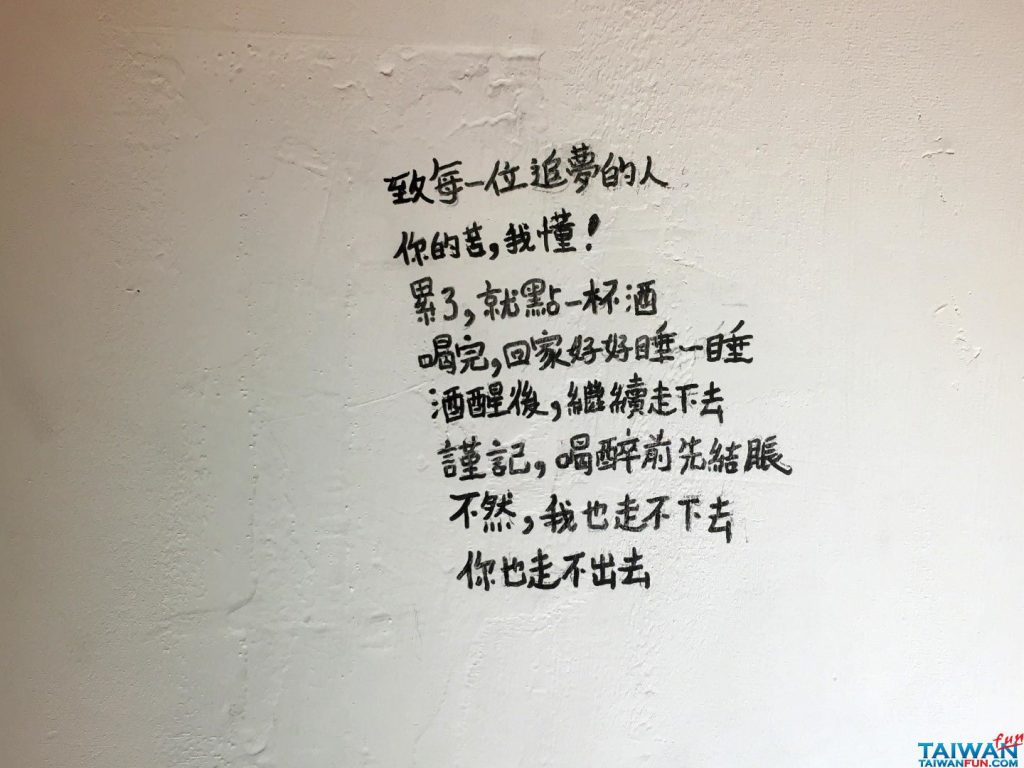 致每一位追夢的人
你的苦,我懂!
累了,就點一杯酒
喝完,回家好好睡一睡
酒醒後,繼續走下去
謹記,喝醉前先結賬
不然,我也走不下去
你也走不出去
TAIWAN fun
TAIWANFUN.COM